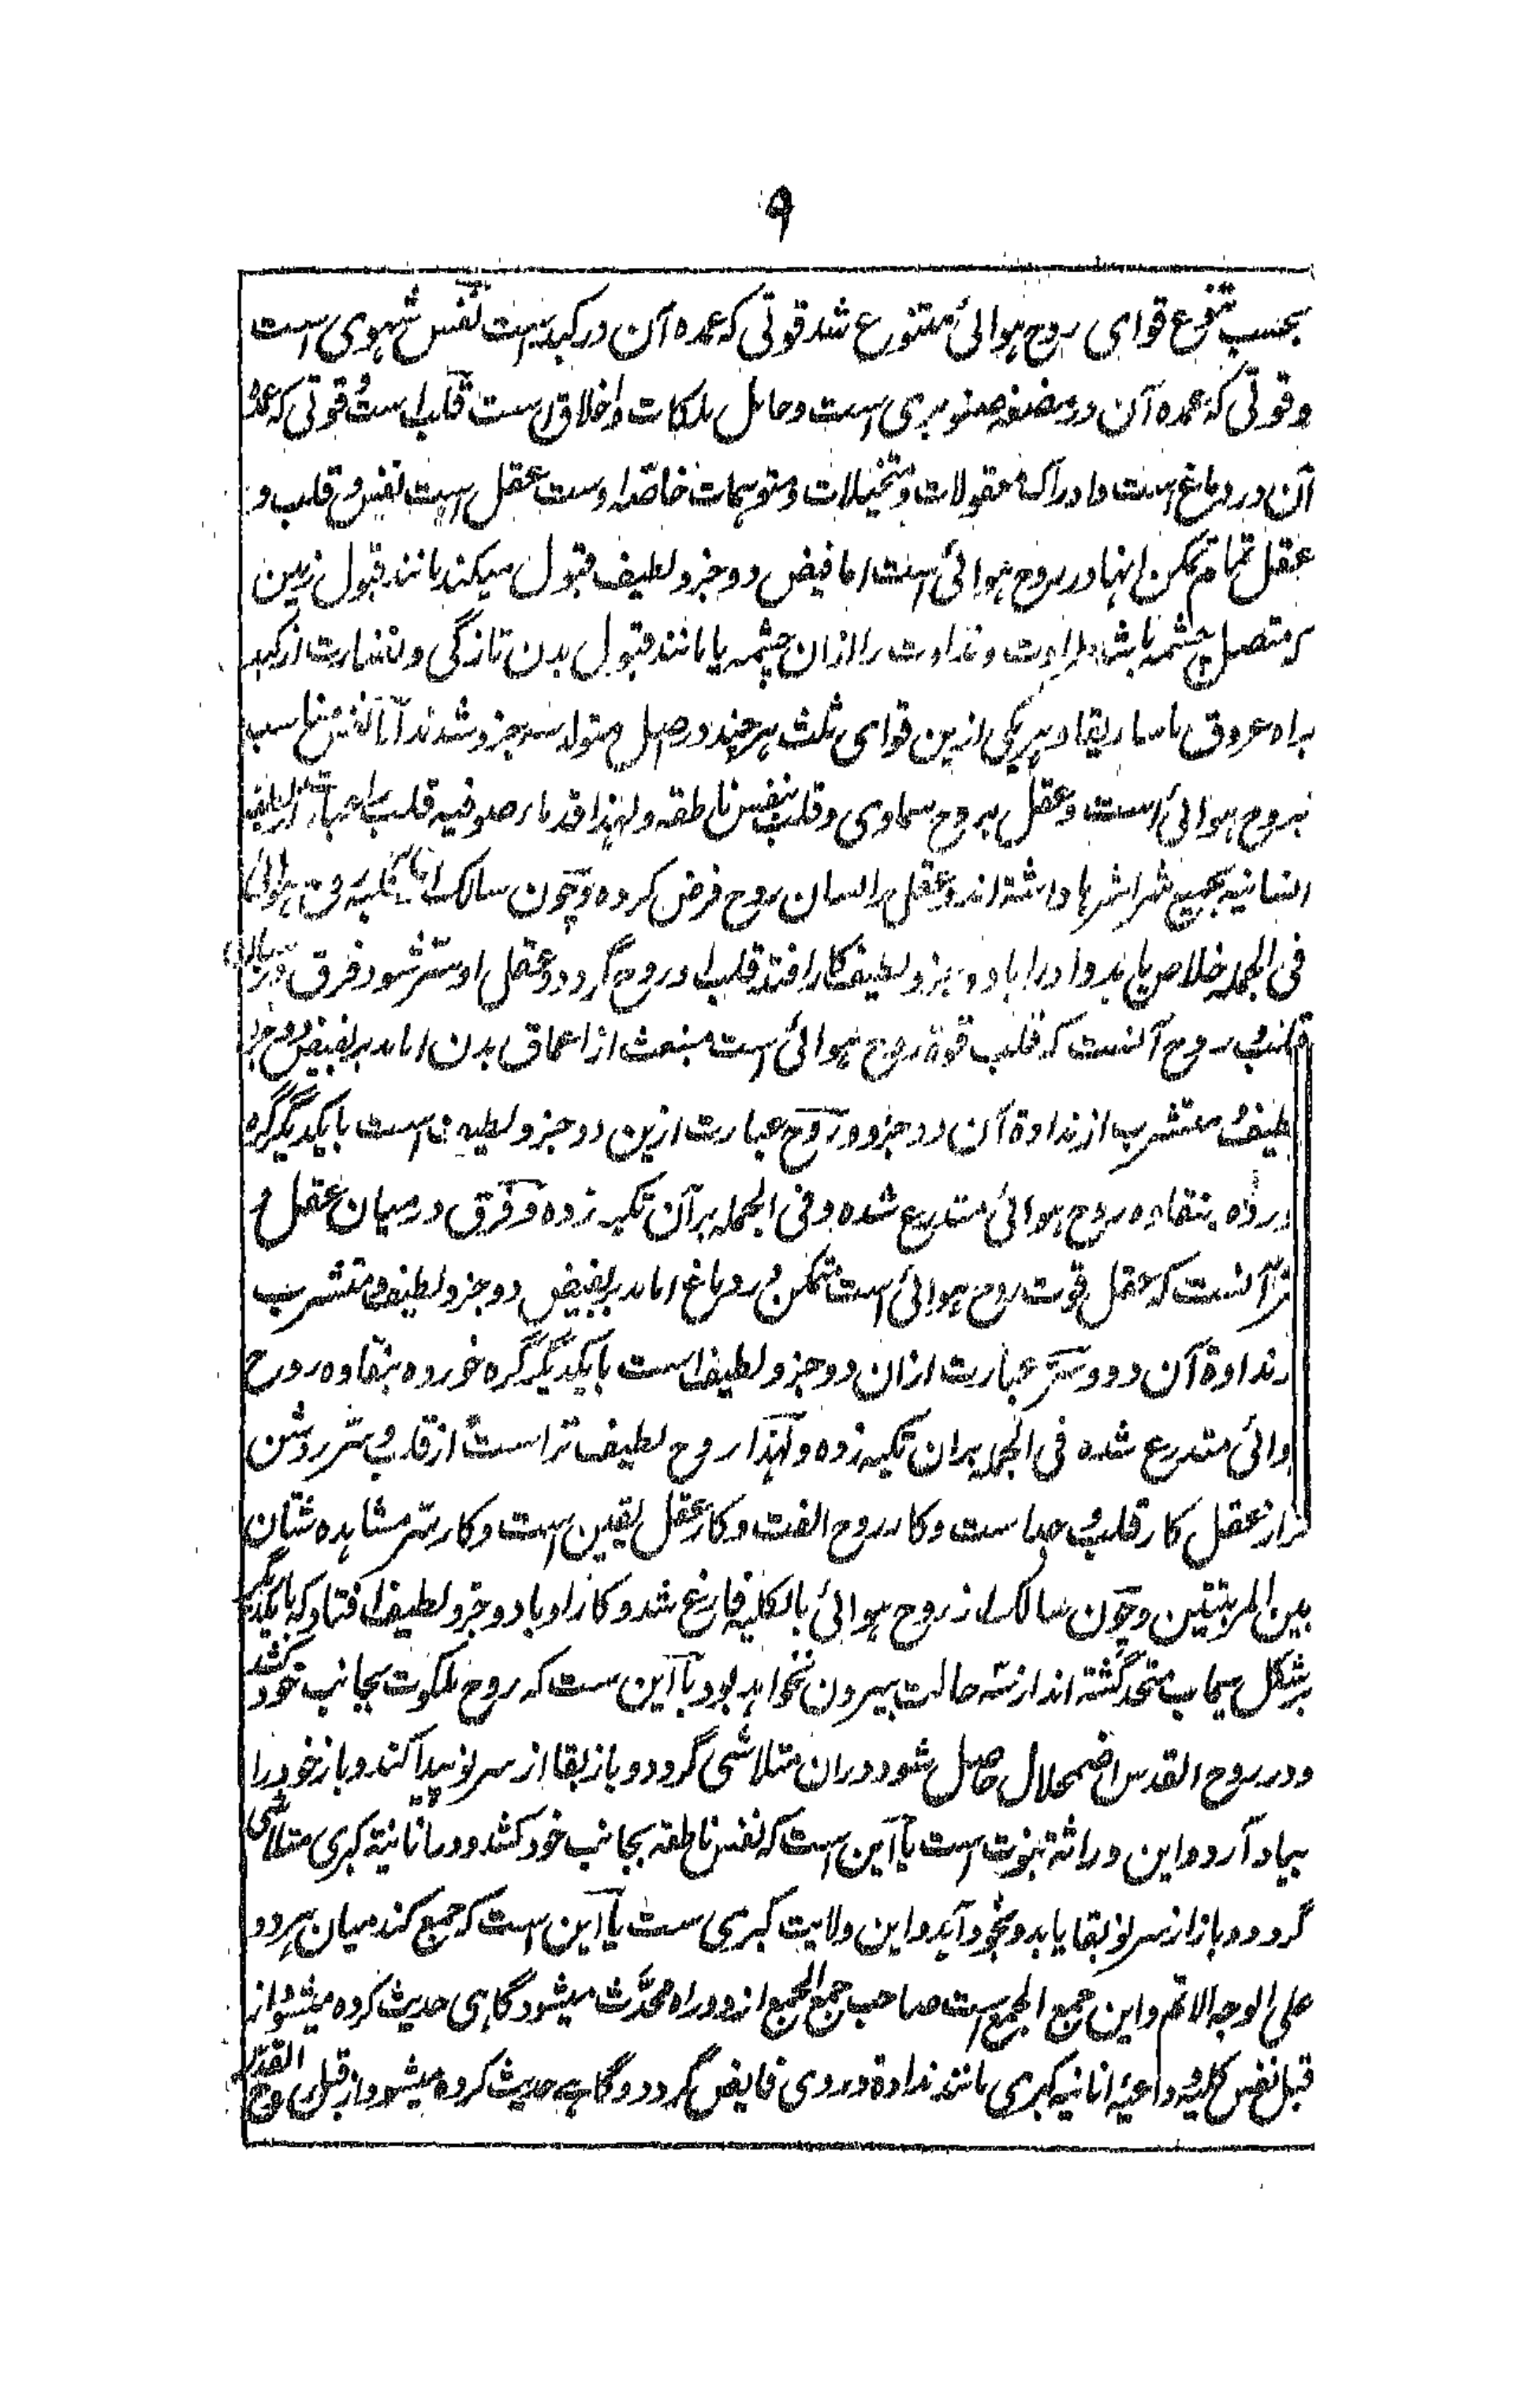 ۹
بحسب تنوع قوای روح هوائی متنوع شد قوتی که عمده آن در کبد است نفس شهوی است
و قوتی که عمده آن در مضغه صنوبری است و حامل ملکات و اخلاق است قلب است و قوتی که عمده
آن در دماغ است و ادراک معقولات و متخیلات و متوهمات خاصه اوست عقل است نفس و قلب و
عقل تمام تمکن اینها در روح هوائی است اما فیض دو جزو لطیف قبول میکند مانند قبول زمین
که متصل چشمه باشد طراوت و نداوت را ازان چشمه یا مانند قبول بدن تازگی و نضارت از کبد
براه عروق ماساریقا و هر یکی ازین قوای ثلث هر چند در اصل متولد سه جزو شدند اما نفس مناسب
بروح هوائی است و عقل بروح سماوی و قلب بنفس ناطقه و لهذا قدماء صوفیه قلب را
انسانیه بجمیع شراشرها داشته اند و عقل را لسان روح فرض کرده و چون سالک از روح هوائی
فی الجمله خلاص یابد و او را با دو جزو لطیف کار افتد قلب او روح گردد و عقل او سر شود و فرق در میان
قلب و روح آنست که قلب قوة روح هوائی است منبعث از اعماق بدن اما مدبر بفیض دو جزو
لطیف متشرب از نداوة آن دو جزو و روح عبارت ازین دو جزو لطیف است با یکدیگر گره
خورده بنقاوه روح هوائی متدرع شده و فی الجمله بر آن تکیه زده و فرق در میان عقل و
سر آنست که عقل قوت روح هوائی است متمکن در دماغ اما مدبر بفیض دو جزو لطیف و متشرب
نداوة آن دو و سر عبارت ازان دو جزو لطیف است با یکدیگر گره خورده بنقاوه روح
هوائی متدرع شده فی الجمله بران تکیه زده و لهذا روح لطیف تر است از قلب و سر روشن
تر از عقل کار قلب وجد است و کار روح الفت و کار عقل یقین است و کار سر مشاهده شتان
بین المرتبتین و چون سالک از روح هوائی بالکلیه فارغ شد و کار او با دو جزو لطیف افتاد که با یکدیگر
بشکل سیماب متحد گشته اند از سه حالت بیرون نخواهد بود یا آین ست که روح ملکوت بجانب خود کشد
و در روح القدس اضمحلال حاصل شود و دران متلاشی گردد و باز بقا از سر نو پیدا کند و باز خود را
بیاد آرد و این وراثة نبوت است یا آین است که نفس ناطقه بجانب خود کشد و در انانیة کبری متلاشی
گردد و باز از سر نو بقا یابد و بخود آید و این ولایت کبری ست یا آین است که جمع کند میان هر دو
علی الوجه الاتم و این جمع الجمع است صاحب جمع الجمع از دو راه محدَّث میشود گاهی حدیث کرده میشود از
قبل نفس کلیه و داعیهٔ انانیه کبری مانند نداوة در وی فایض گردد و گاهے حدیث کرده میشود از قبل روح القدس